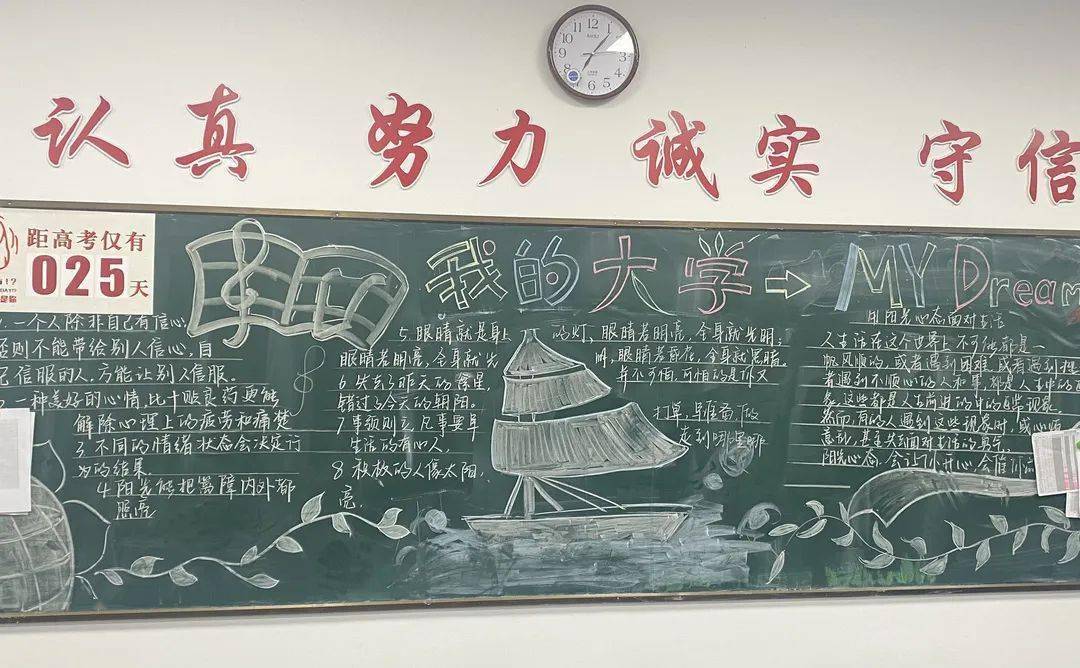 认真 努力 诚实 守信
距高考仅有
025天
我的大学 → MY Dream
一个人除非自己有信心
否则不能带给别人信心,自
己信服的人,方能让别人信服。
一种美好的心情,比十贴良药更能
解除心理上的疲劳和痛楚
3. 不同的情绪状态会决定行
为的结果
4.阳光能把黑暗内外都
照亮
5.眼睛就是身上
眼睛若明亮,全身就光
6.失去了昨天的
错过今天的朝阳。
7.事预则立,凡事要早
生活的有心人,
8.
的人像太阳,
亮,
的灯,眼睛若明亮,全身就光明,
眼睛若昏花,全身就黑暗
并不可怕,可怕的是你又
打算,早准备做
走到哪里哪
阳光心态面对生活
人生活在这个世界上不可能都是一
帆风顺的,或者遇到困难,或者遇到挫
者遇到不顺心的人和事,都是人生中的
这些都是人生前进的中的正常现象
然而有的人遇到这些现象时,或心烦
意乱,甚至失去面对生活的勇气
阳光心态,会让你开心,会